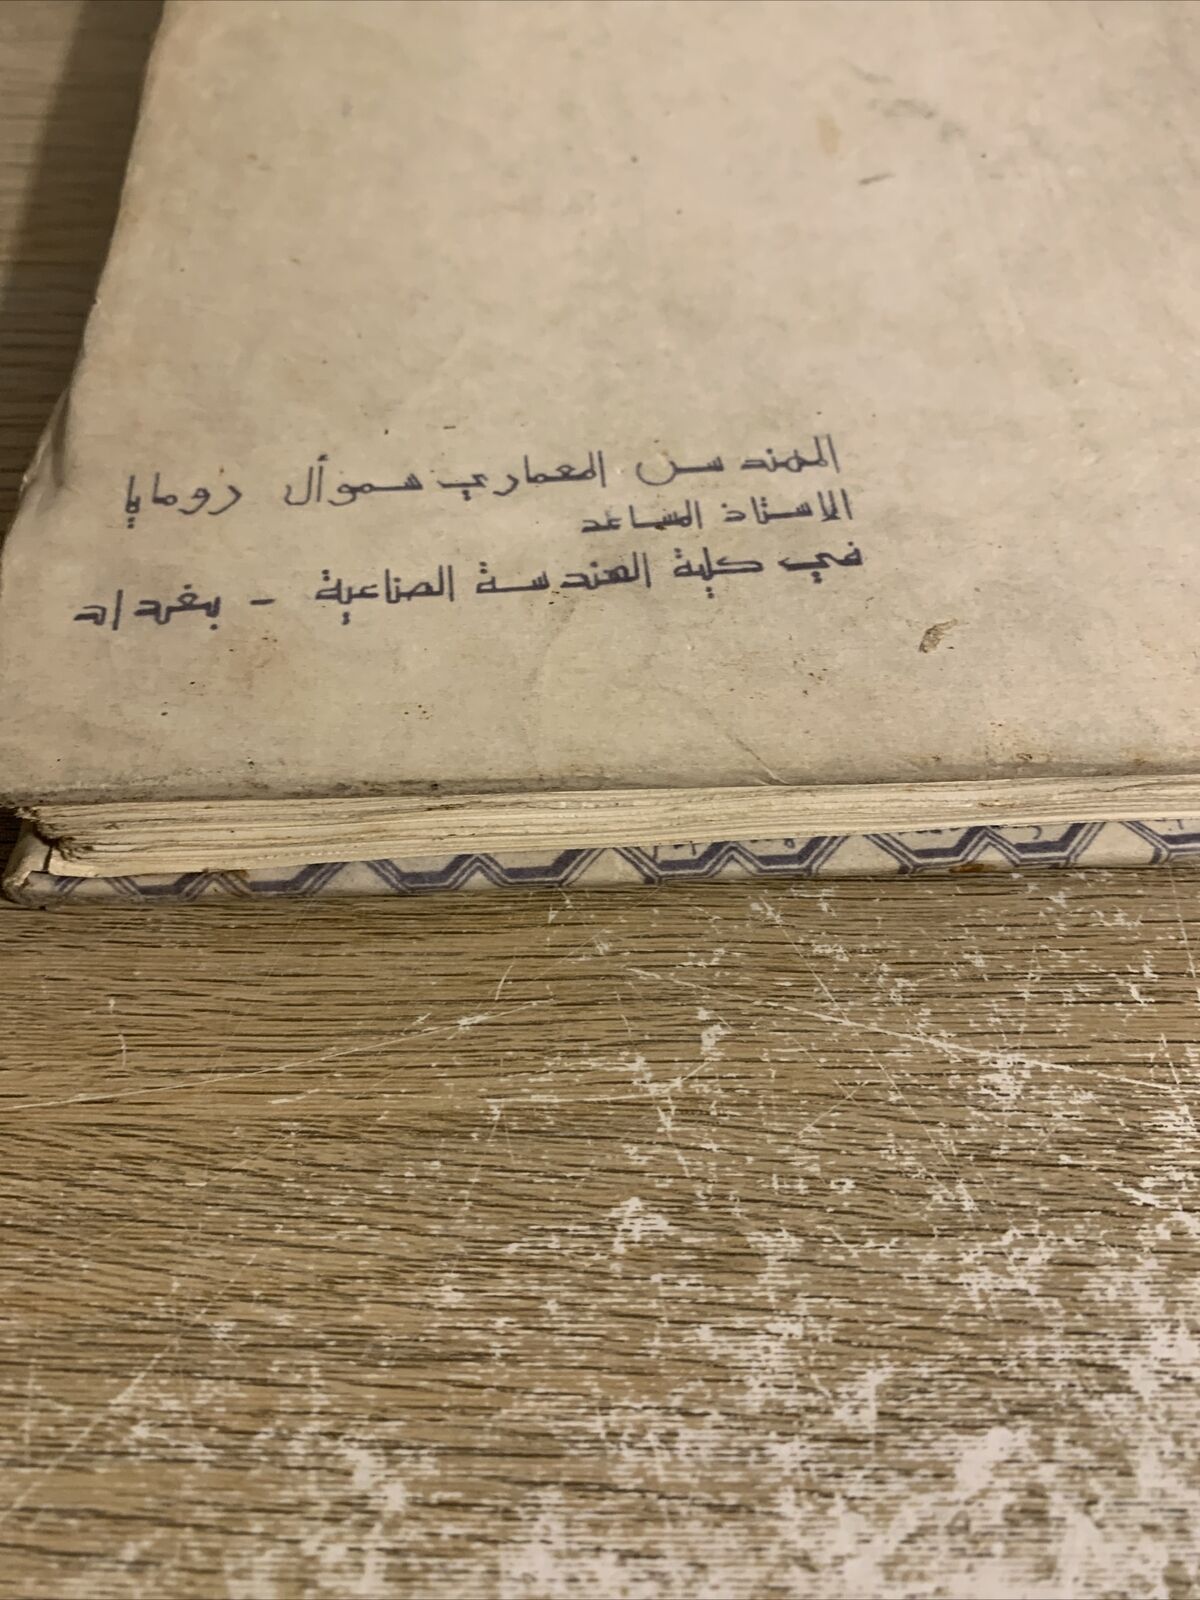 المهندس المعماري سموأل رومايا
الاستاذ المساعد
في كلية الهندسة الصناعية - بغداد